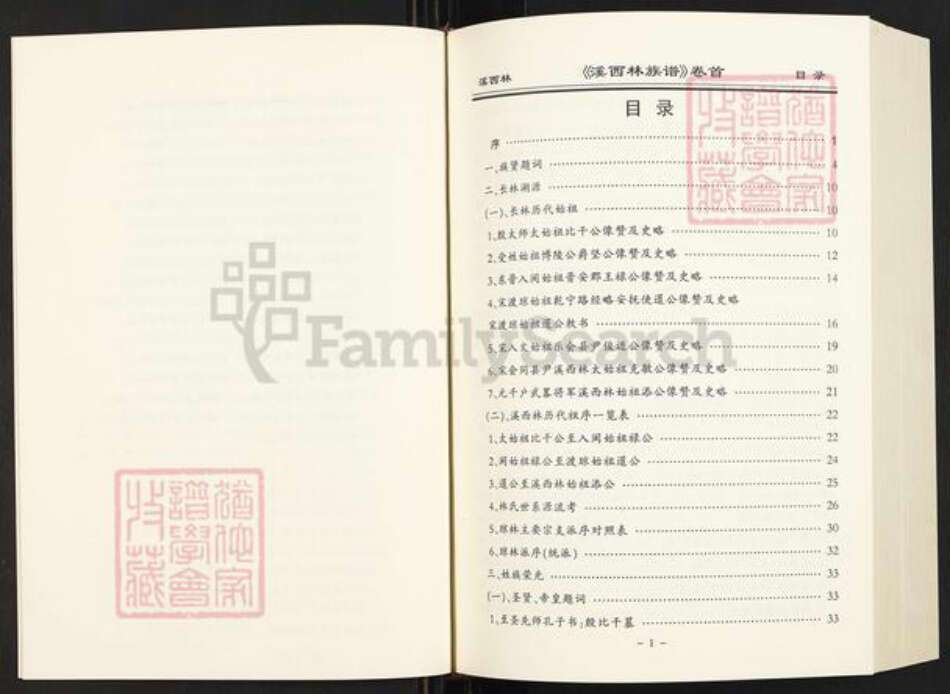 溪西林 《溪西林族谱》卷首 目录
目录
序 1
一、族贤题词 4
二、长林溯源 10
(一)、长林历代始祖 10
1、殷太师太始祖比干公像赞及史略 10
2、受姓始祖博陵公爵坚公像赞及史略 12
3、东晋入闽始祖晋安郡王禄公像赞及史略 14
4、宋渡琼始祖乾宁路经略安抚使道公像赞及史略
宋渡琼始祖道公教书 16
5、宋入文始祖乐会县尹俊逅公像赞及史略 19
6、宋会同县尹溪西林太始祖克敏公像赞及史略 20
7、元千户武畧将军溪西林始祖添公像赞及史略 21
(二)、溪西林历代祖序一览表 22
1、太始祖比干公至入闽始祖禄公 22
2、闽始祖禄公至渡琼始祖道公 24
3、道公至溪西林始祖添公 25
4、林氏世系源流考 26
5、琼林主要宗支派序对照表 30
6、琼林派序(统派) 32
三、姓族荣光 33
(一)、圣贤、帝皇题词 33
1、至圣先师孔子书:殷比干墓 33
- 1 -
FamilySearch
猶他家
譜學會
收藏
猶他家
譜學會
收藏